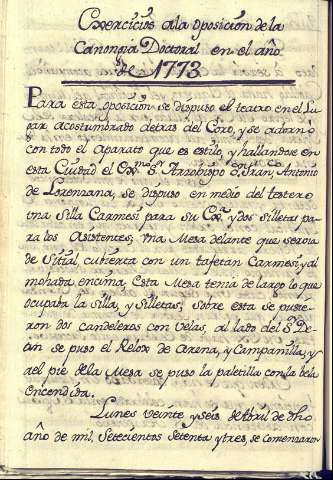 Exercicios ala oposicion de la
Canongia Doctoral en el año
de 1773
Para esta oposicion se dispuso el teatro en el Lu
gar acostumbrado detras del Coro, y se adornó
con todo el Aparato que es estilo, y hallandose en
esta Ciudad el Exmo. Sr. Arzobispo Dn. Fran.co Antonio
de Lorenzana, se dispuso en medio del testero
una Silla Carmesi para su Exa. y dos silletas pa
ra los Asistentes; una Mesa delante que servia
de Sitial, cubierta con un tafetan Carmesi, y al
mohada encima. Esta Mesa tenia de largo lo que
ocupaba la silla, y silletas; sobre esta se pusie-
ron dos candeleros con velas, al lado del Sr. De-
an se puso el Relox de Arena, y Campanilla, y
al pie de la Mesa se puso la paletilla con la bela
encendida.
Lunes veinte y seis de Abril de dho
año de mil, Setecientos Setenta y tres, se comenzaron